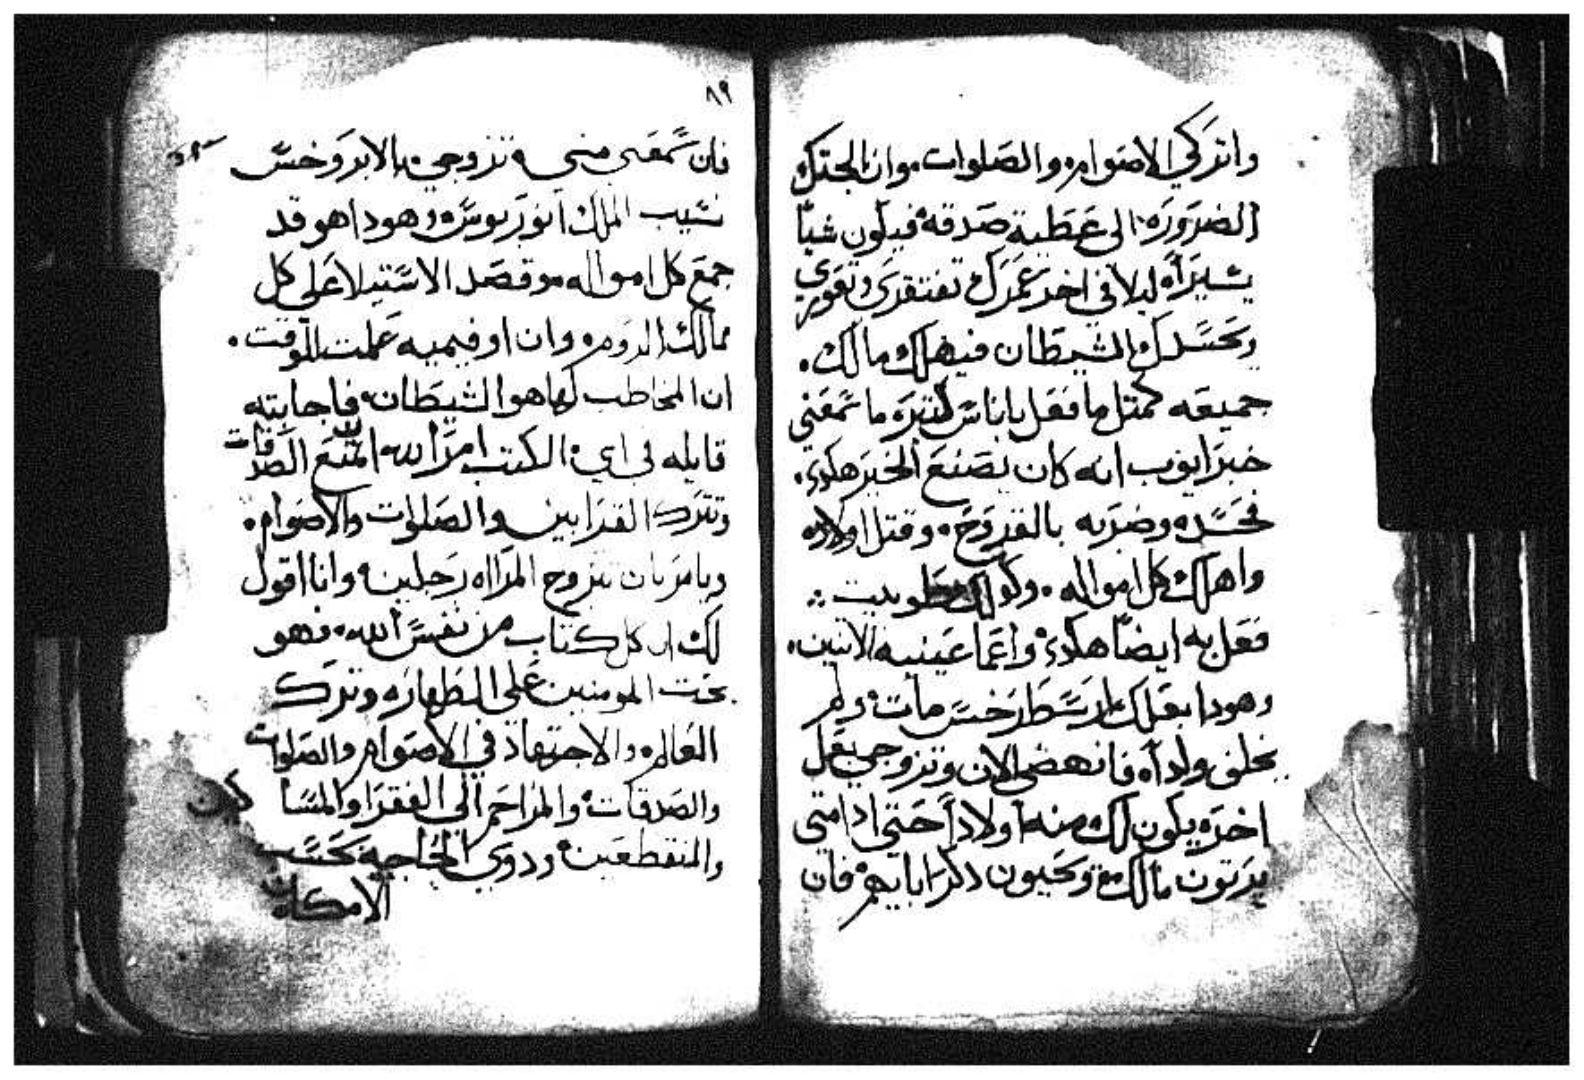 واتركي الاصوام والصلوات وان الجتك
الضروره الى عطية صدقة فيكون شيا
يسيرا ليلا في اخر عمرك تفتقري وتعوزي
ويحسدك الشيطان فيهلك مالك
جميعه كمثل ما فعل باناس كتيره ما سمعتي
خبر ايوب انه كان يصنع الخير هكدي
فحسده وضربه بالقروح وقتل اولاده
واهلك كل امواله وكدلك طوبيت
فعل به ايضا هكدي واعما عينيه الاتنين
وهودا بعلك ارسطارخس مات ولم
يخلف ولدا فانهضي الان وتزوجي بعل
اخر يكون لك منه اولادا حتي ادا متي
يرتون مالك ويحيون دكر ابايهم فان
٨٩
فان سمعتي مني وتزوجي بالابروخس
نسيب الملك وهودا هو قد
جمع كل امواله وقصد الاستيلا علي كل
ممالك الروم وان اوفيميه علمت للوقت
ان المخاطب لها هو الشيطان فاجابته
قايله في اي الكتب امر الله المنع الصدقات
وتترك القرابين والصلوات والاصوام
ويامر بان تتزوج المراه رجلين وانا اقول
لك ان كل كتاب من نفس الله فهو
يحت المومنين علي الطهاره وترك
العالم والاجتهاد في الاصوام والصلوات
والصدقات والمراحم الي الفقرا والمسا كين
والمنقطعين ودوي الحاجة بحسب
الامكان